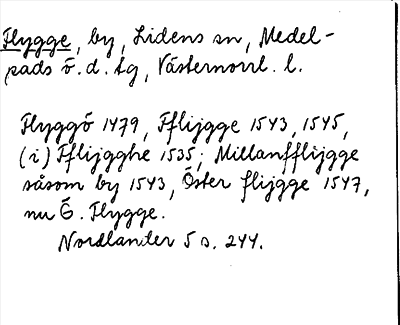 Flygge, by, Lidens sn, Medel-
pads ö. d. tg, Västernorrl. l.
Flyggö 1479, Fflijgge 1543, 1545,
(i) Fflijgghe 1535; Millanfflijgge
såsom by 1543, Öster flijgge 1547,
nu Ö. Flygge.
Nordlander 5 s. 244.